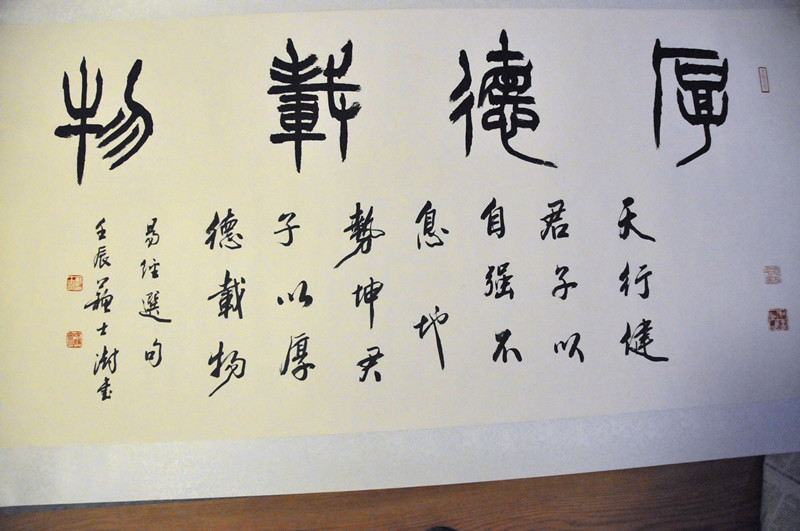 厚德載物
天行健
君子以
自强不
息 地
勢坤君
子以厚
德載物
易经選句
壬辰 蘇士澍書